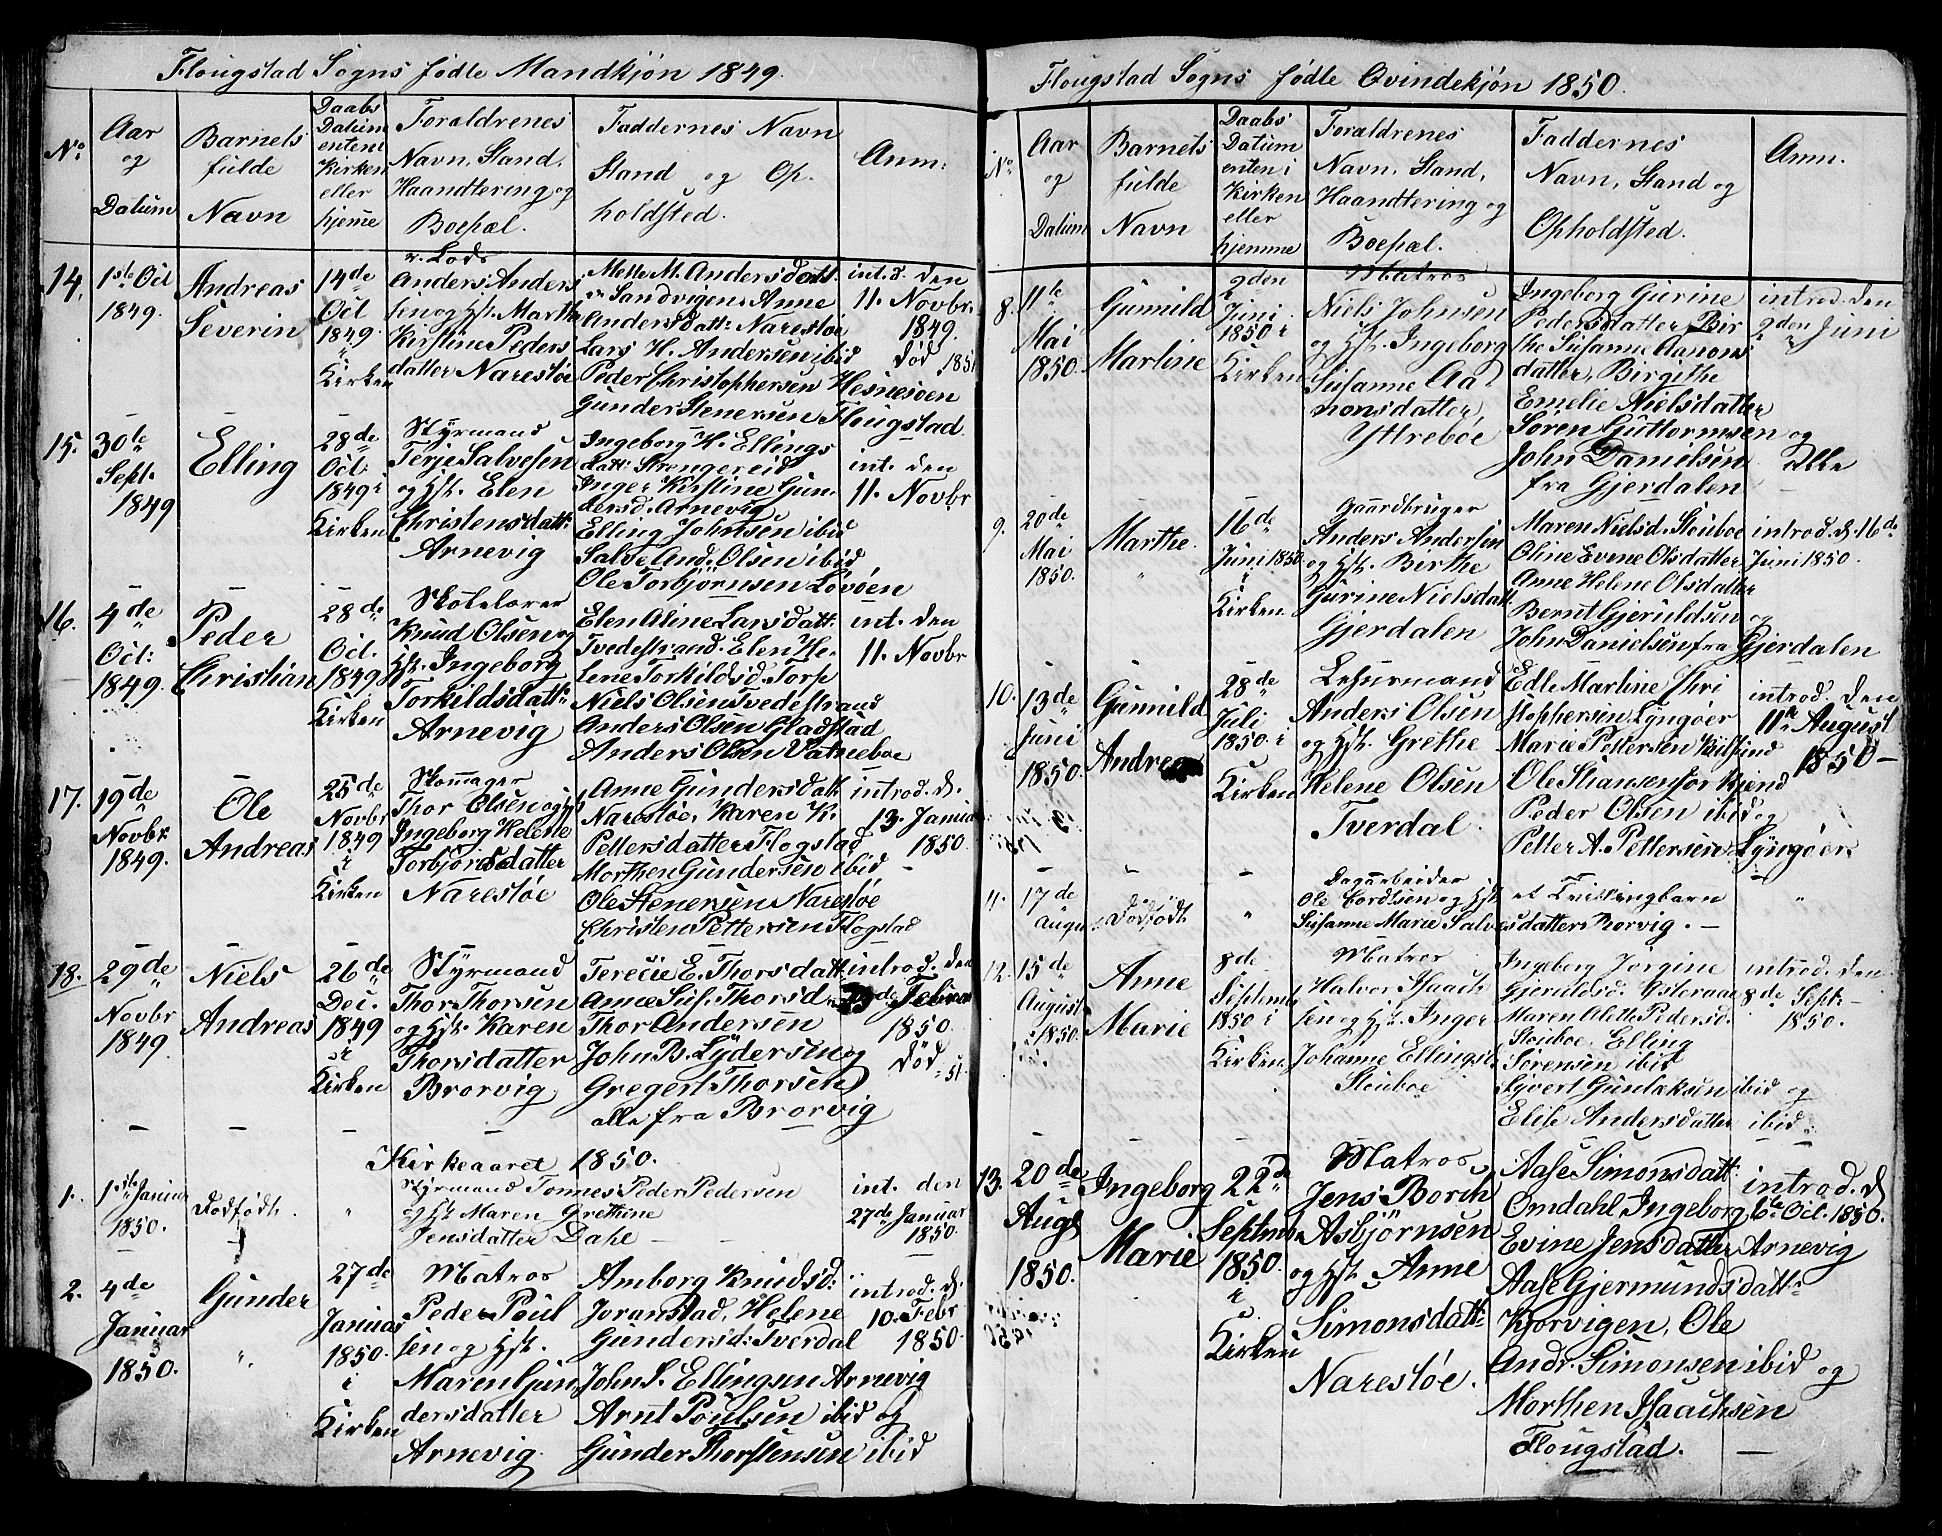 Flougstad Sogns fødte Mandkjön 1849.
No.
Aar
og
Datum
Barnets
fulde
Navn
Daabs
Datum
enten i
Kirken
eller
hjemme
Foraldrenes
Navn, Stand,
Haandtering og
Boepæl.
Faddernes Navn
Stand og Op.
holdsted.
Anm:
14.
1ste Oct
1849.
Andreas
Severin
14de
Oct
1849.
i
Kirken
Lods
Anders Anders
sen og Hst. Marthe
Kirstine Peders
datter Narestöe
Mette M. Andersdatt.
Sandvigen, Anne
Andersdatt: Narestöe
Lars H. Andersen ibid
Peder Christophersen Hesnesöen
Gunder Stenersen Flougstad.
int. d. den
11. Novbr.
1849.
död 1851
15.
30te
Sept.
1849
Elling
28de
Oct
1849 i
Kirken
Styrmand
Terje Salvesen
og Hst. Elen
Christensdatt:
Arnevig
Ingeborg H. Ellings
datt: Strengereid
Inger Kirstine Gun
dersd. Arnevig
Elling Johnsen ibid
Salve And. Olsen ibid
Ole Torbjörnsen Lövöen
int. den
11. Novbr
16.
4de
Oct:
1849.
Peder
Christian
28de
Oct.
1849 i
Kirken
Skolelærer
Knud Olsen og
Hst. Ingeborg
Torkildsdatt:
Arnevig
Elen Aline Larsdatt.
Tvedestrand. Elen He-
lene Torkildsd. Torp
Niels Olsen Tvedestrand
Anders Olsen Gladstad
Anders Olsen Vatneboe
int. den
11. Novbr
17.
19de
Novbr
1849.
Ole
Andreas
25de
Novbr
1849
i
Kirken
Skomager
Thor Olsen og Hst
Ingeborg Helene
Torbjörnsdatter
Narestöe
Anne Gundersdatt
Narestöe, Karen K.
Pettersdatter Flogstad
Morthen Gundersen ibid
Ole Stenersen Narestöe
Christen Pettersen Flogstad
introd. d.
13. Januar
1850.
18.
29de
Novbr
1849.
Niels
Andreas
26de
Dec.
1849
i
Kirken
Styrmand
Thor Thorsen
og Hst. Karen
Thorsdatter
Brorvig
Terecie E. Thorsdatt.
Anne Sus. Thorsd.
Thor Andersen
John B. Lydersen og
Gregert Thorsen
alle fra Brorvig
introd. den
Februar
1850.
Död 51.
Kirkeaaret 1850.
1.
1ste Januar
1850.
Dödfödt.
Styrmand Tönnes Peder Pedersen
og Hst. Maren Grethine
Jensdatter Dahe
int. den
27de Januar
1850.
2.
4de
Januar
1850.
Gunder
27de
Januar
1850.
i
Kirken
Matros
Peder Poul
sen og Hst.
Maren Gun
dersdatter
Arnevig.
Amborg Knudsd.
Joranstad, Helene
Gundersd: Tverdal
John S. Ellingsen Arnevig
Arnt Poulsen ibid og
Gunder Thorstensen ibid
introd. d.
10. Febr
1850.
Flougstad Sogns fødte Qvindekjön 1850.
No.
Aar
og
Datum
Barnets
fulde
Navn
Daabs
Datum
enten i
Kirken
eller
hjemme
Foraldrenes
Navn, Stand,
Haandtering og
Boepæl.
Faddernes
Navn, Stand og
Opholdsted.
Anm.
8.
11te
Mai
1850.
Gunnild
Martine
9den
Juni
1850 i
Kirken
Matros
Niels Johnsen
og Hst. Ingeborg
Susanne Aa
nonsdatter,
Yttreböe
Ingeborg Gurine
Pedersdatter, Bir
the Susanne Aanons
datter, Birgithe
Emelie Nielsdatter
Sören Guttormsen og
John Danielsen alle
fra Gjerdalen
introd. den
9den Juni
9.
20de
Mai
1850.
Marthe
16de
Juni 1850
i
Kirken
Gaardbruger
Anders Andersen
og Hst. Birthe
Gurine Nielsdatt
Gjerdalen
Maren Nielsd. Stouboe
Oline Evene Olsdatter
Anne Helene Olsdatter
Bernt Gjeruldsen og
John Danielsen fra Gjerdalen
introd. d. 16de
Juni 1850.
10.
13de
Juni
1850.
Gunnild
Andrea
28de
Juli
1850 i
Kirken
Leiurmand
Anders Olsen
og Hst. Grethe
Helene Olsen
Tverdal.
Edle Martine Chri
stophersen Lyngöer
Marie Pettersen Kilsund
Ole Stiansen for Kjend
Peder Olsen ibid og
Petter A. Pettersen Lyngöer.
introd. den
11te August
1850
11.
17de
Augu
Dödfödt
Dagarbeider
Ole Cordtsen og Hst
Susanne Marie Salvesdatter Borvig.
et Tvillingbarn
12.
15de
August
1850.
Anne
Marie
8de
Septemb
1850 i
Kirken
Matros
Halvor Isaach
sen og Hst. Inger
Johanne Ellingsd.
Stouboe
Ingeborg Jorgine
Gjeruldsd. Osteraae
Maren Alette Pedersd.
Stouboe, Elling
Sörensen ibid
Syvert Gunlaksen ibid og
Elise Andersdatter ibid.
introd. den
8de Sept.
1850.
13.
20de
Augs
1850.
Ingeborg
Marie
22de
Septemb
1850.
i
Kirken
Matros
Jens Borch
Asbjörnsen
og Hst. Anne
Simonsdatt:
Narestöe.
Aase Simonsdatt:
Omdahl, Ingeborg
Evine Jensdatter Arnevig
Aase Gjermundsdatt:
Kjorvigen, Ole
Andr. Simonsen ibid og
Morthen Isaachsen
Flougstad.
introd. d
6te Oct. 1850.